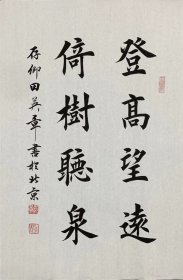 登高望遠
倚樹聽泉
存仰田英章書於北京